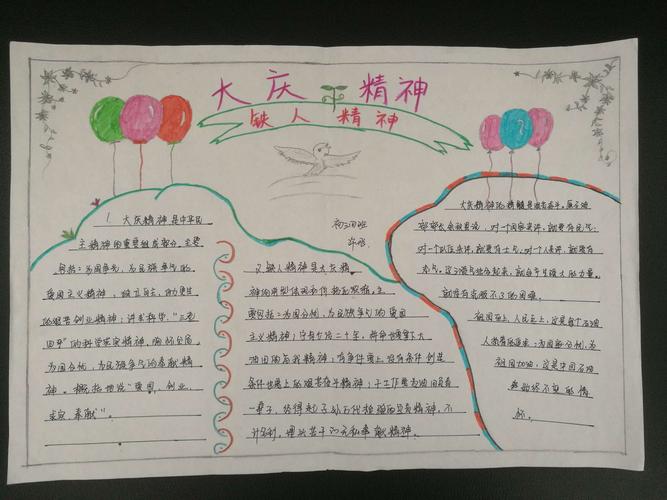 大庆精神
铁人精神
初三四班
1、大庆精神是中华民
主精神的重要组成部分，主要
包括：为国争光，为民族争气的
爱国主义精神，独立自主，自力更生
的艰苦创业精神；讲求科学、"三老
四严"的科学求实精神，胸怀全局、
为国分忧，为民族争气的奉献精
神。概括地说"爱国、创业、
求实、奉献"。
2、铁人精神是大庆精
神的典型体现和
要包括：为国分忧，为民族争气的爱国
主义精神；宁肯少活二十年，拼命也要拿下大
油田的忘我精神；有条件要上，没有条件创造
条件也要上的艰苦奋斗精神；干工作要为油田负责
一辈子，经得起子孙万代检验的负责精神，不
计名利，埋头苦干的无私奉献精神。
大庆精神的精髓是
对一个国家来讲，就要有民气；
对一个队伍来讲，就要有士气；对一个人来讲，就要有
志气。这三股气结合起来，就会产生强大的力量。
就没有克服不了的困难。
祖国至上，人民至上，这是每个石油
人
祖国加油，这是中国石油